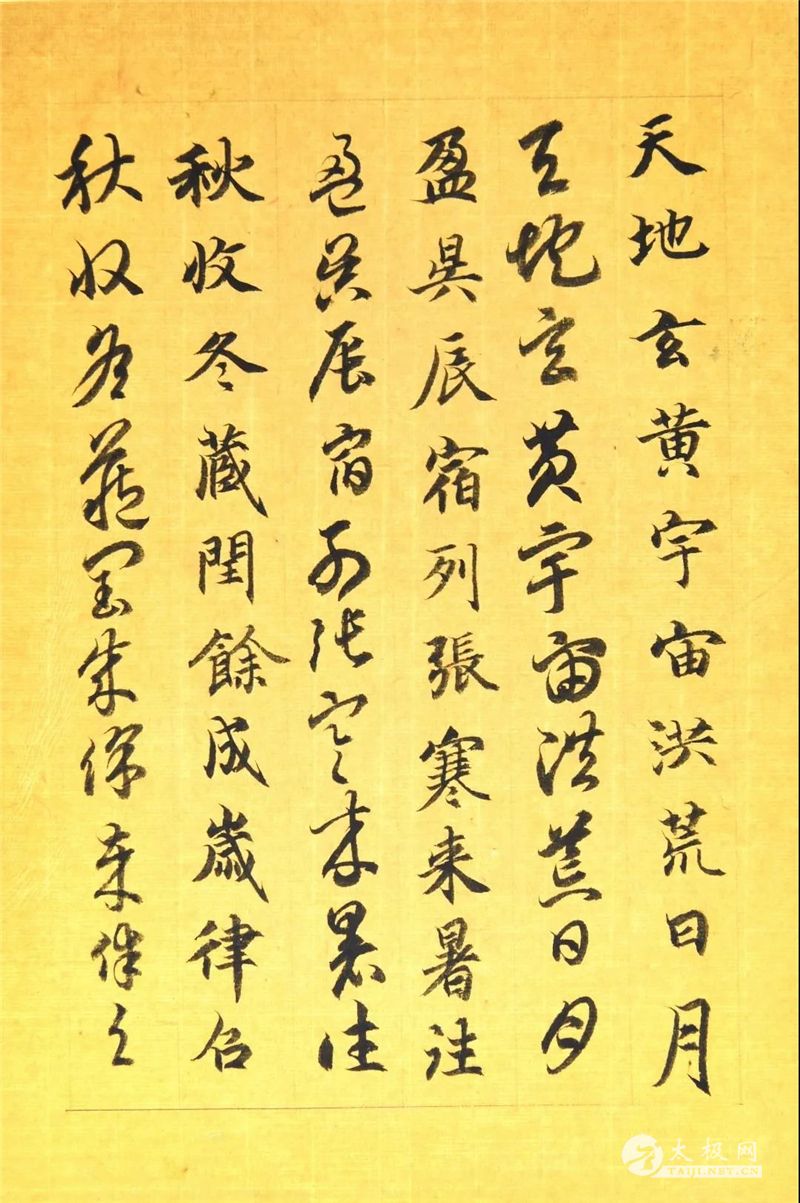 天地玄黄宇宙洪荒日月
天地玄黄宇宙洪荒日月
盈昃辰宿列張寒来暑往
盈昃辰宿列張寒来暑往
秋收冬藏閏餘成歲律召
秋收冬藏閏餘成歲律召
太极网
TAIJI.NET.CN